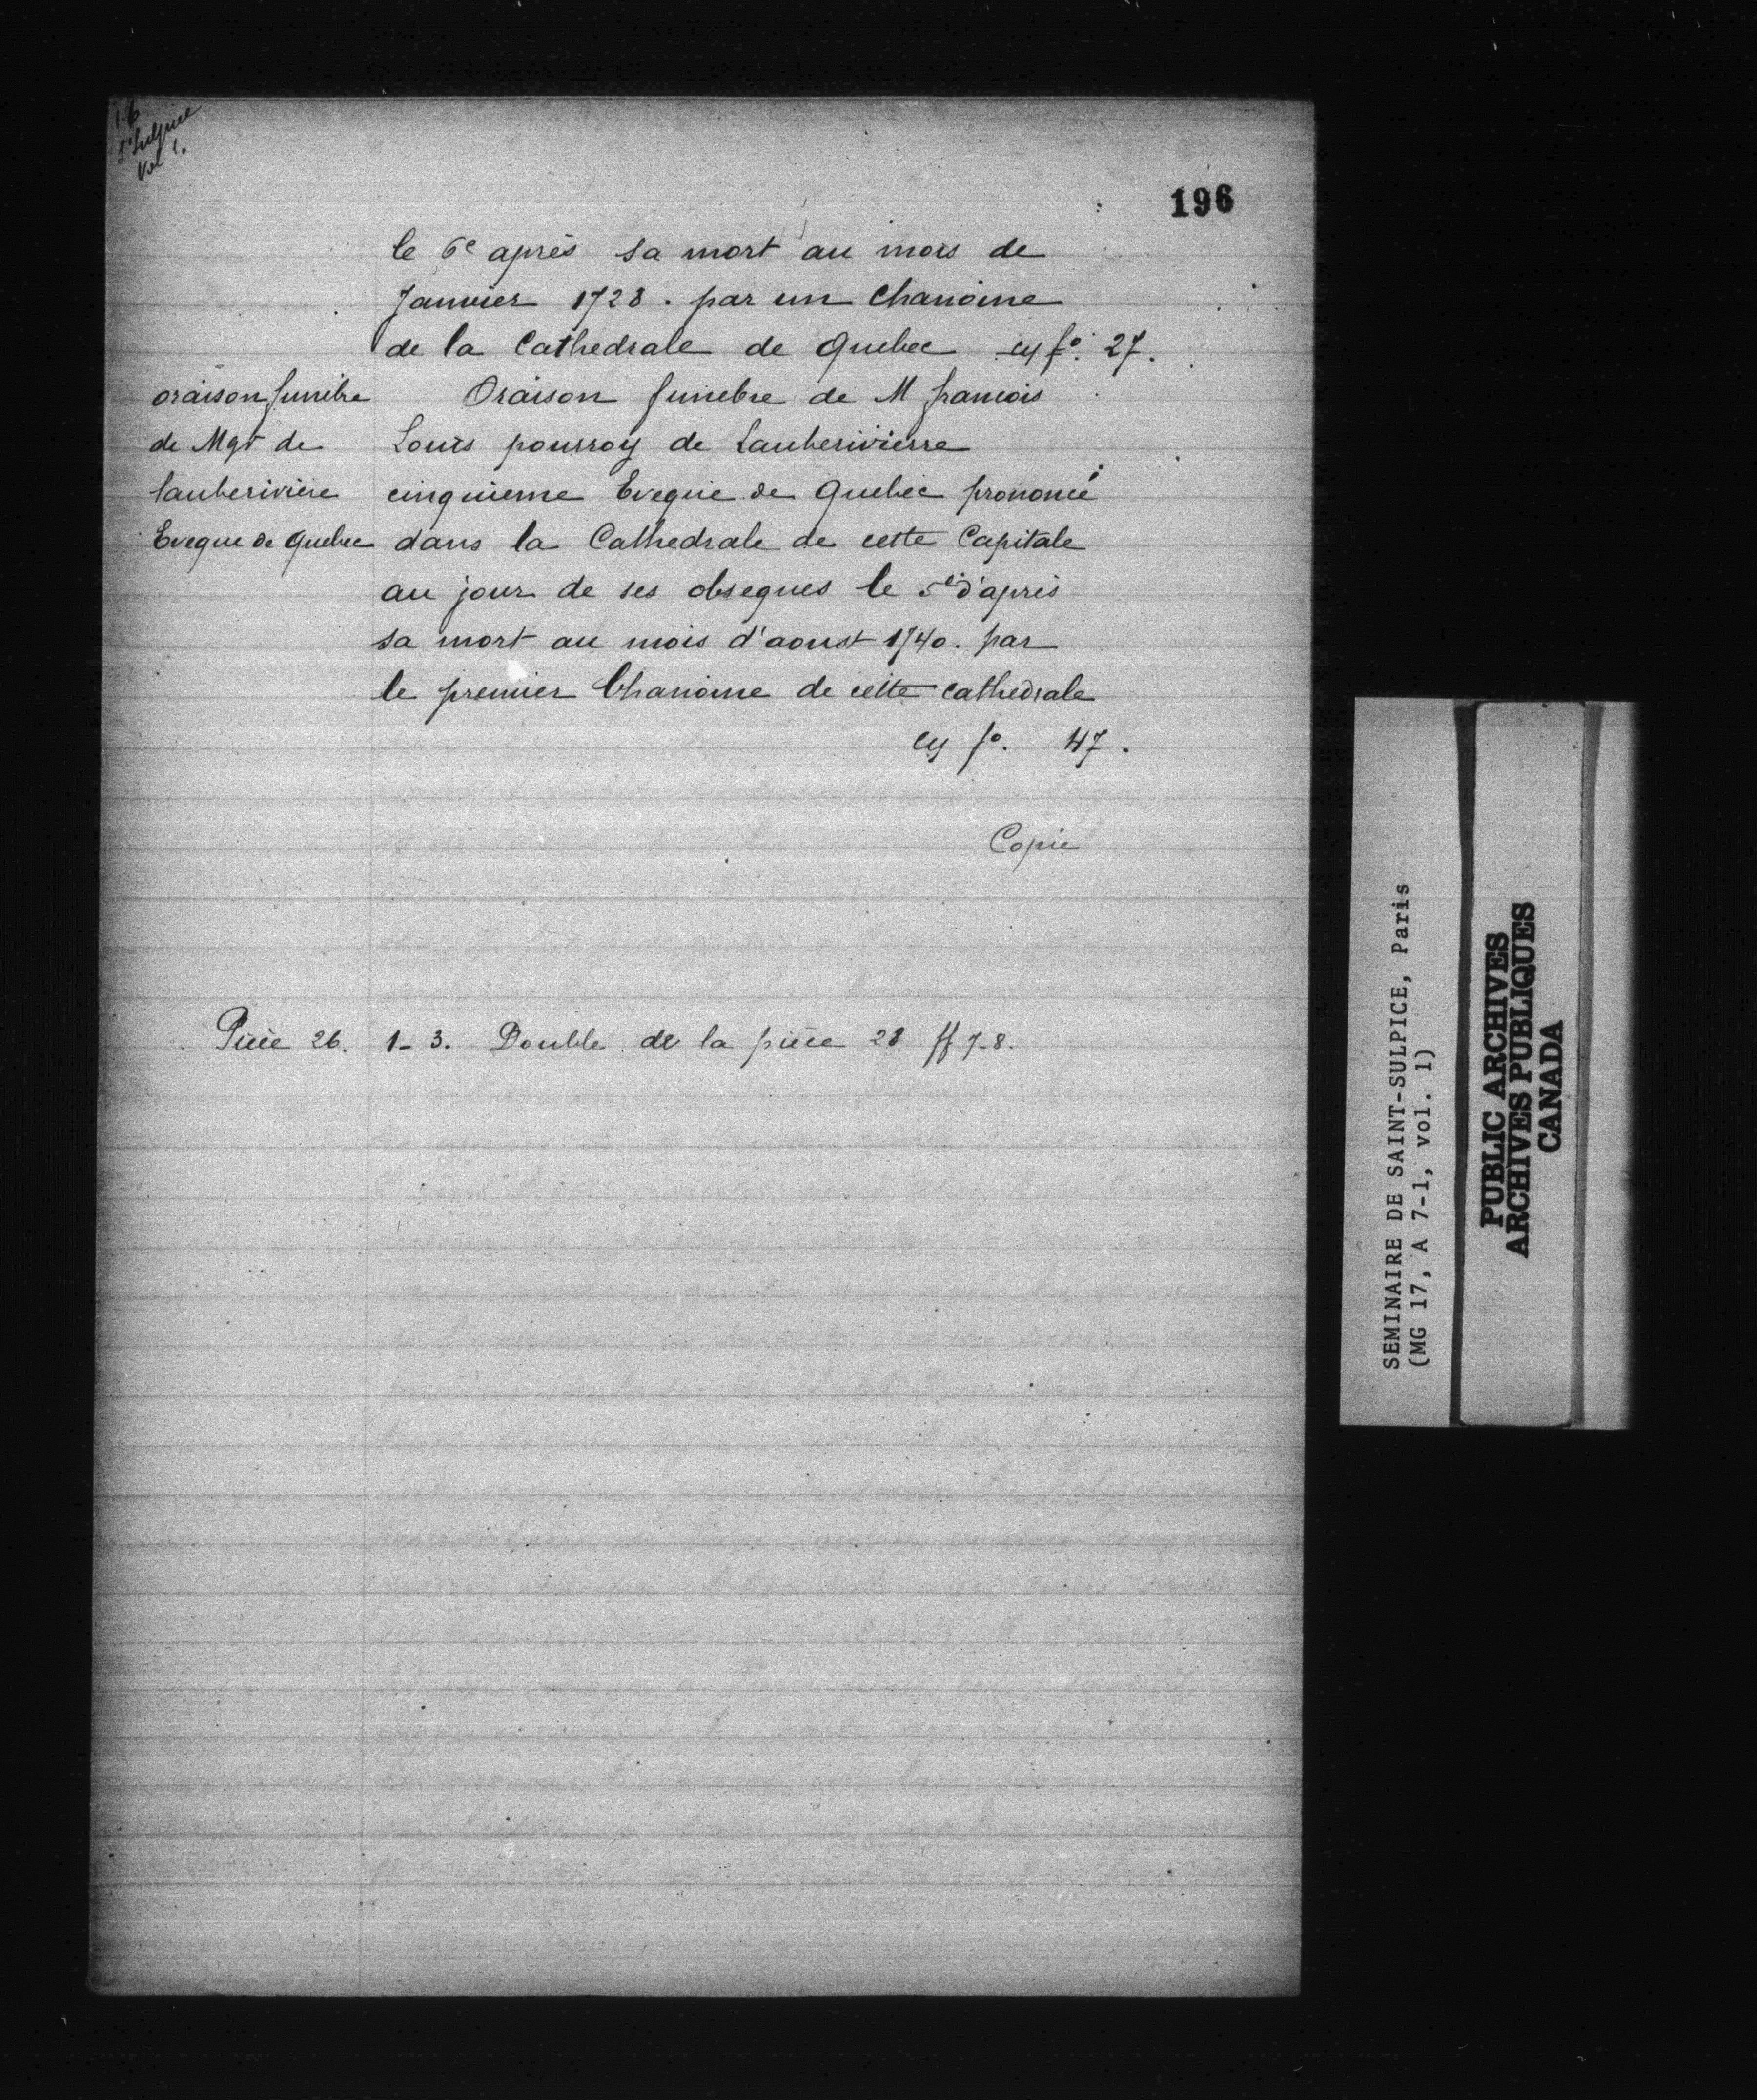 St Sulpice
Vol 1.
196
le 6e après sa mort au mois de
Janvier 1728. par un Chanoine
de la Cathedrale de Quebec cy fo. 27.
oraison funèbre
de Mgr de
lauberiviere
Eveque de Quebec
Oraison funebre de M francois
Louis pourroy de Lauberivierre
cinquieme Eveque de Quebec prononcé
dans la Cathedrale de cette Capitale
au jour de ses obseques le 5e d'après
sa mort au mois d'aoust 1740. par
le premier Chanoine de cette cathedrale
cy fo. 47.
Copie
Pièce 26. 1-3. Double de la pièce 28 ff 7-8.
SEMINAIRE DE SAINT-SULPICE, Paris
(MG 17, A 7-1, vol. 1)
PUBLIC ARCHIVES
ARCHIVES PUBLIQUES
CANADA